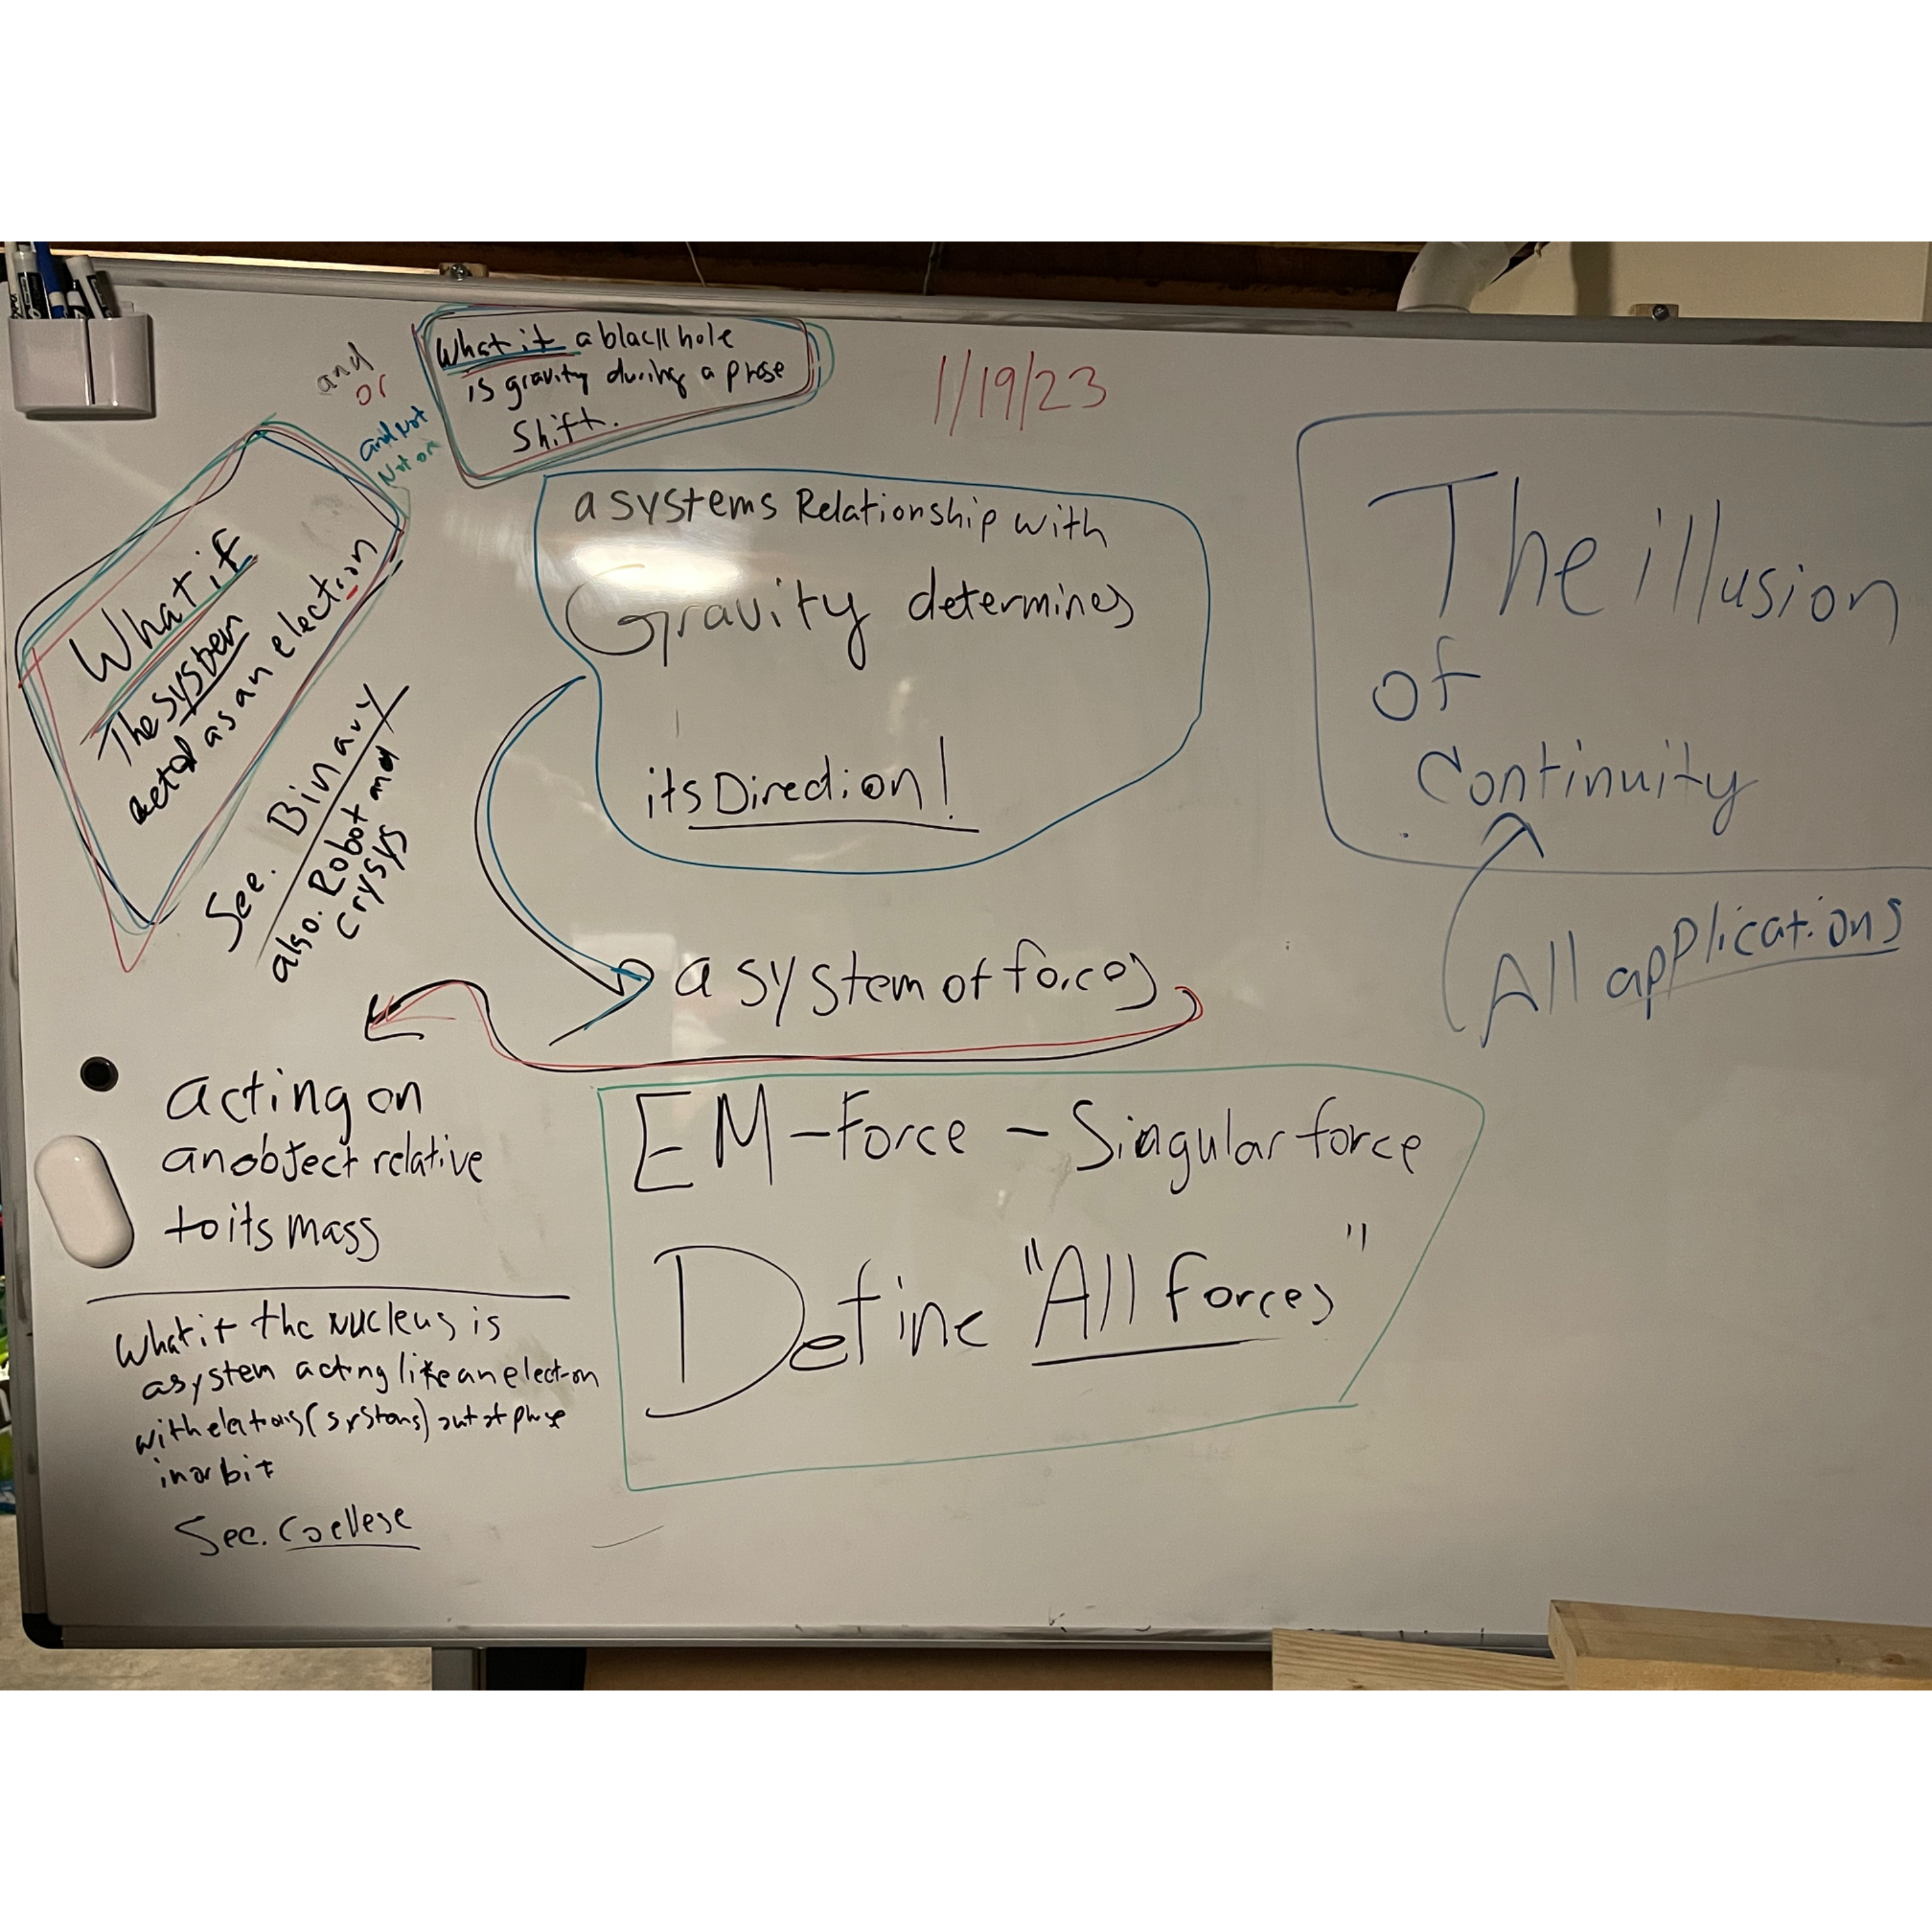 and
or
and Not
Not or
What if a black hole
is gravity during a phase
Shift.
1/19/23
What if
The System
acted as an electron
See. Binary
also. Robot and
Crysys
a systems Relationship with
Gravity determines
its Direction!
a system of forces
acting on
an object relative
to its mass
What if the Nucleus is
a system acting like an electron
with electrons (systems) out of phase
in orbit
See. Coellese
EM-Force - Singular force
Define "All forces"
The illusion
of
Continuity
All applications